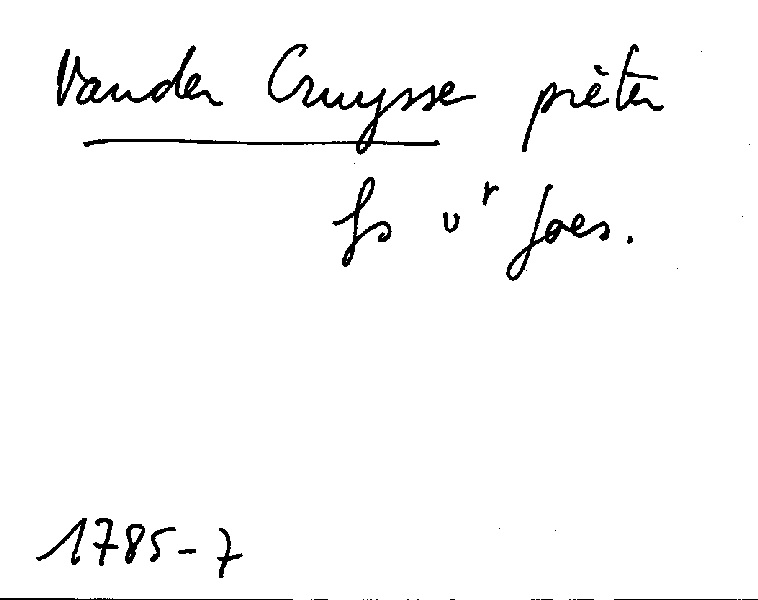 Vander Cruysse piêter
fs vr Joes.
1785-7